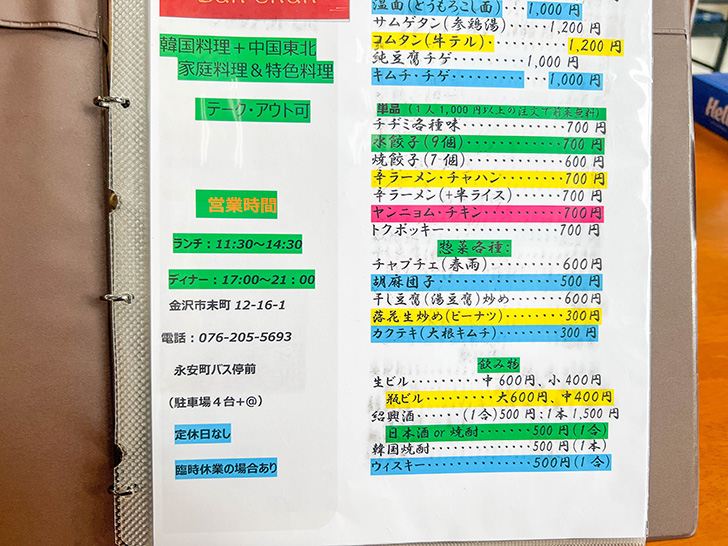 韓国料理+中国東北
家庭料理&特色料理
テーク・アウト可
営業時間
ランチ:11:30~14:30
ディナー:17:00~21:00
金沢市末町 12-16-1
電話:076-205-5693
永安町バス停前
(駐車場4台+@)
定休日なし
臨時休業の場合あり
温面(とうもろこし面)・・・・1,000円
サムゲタン(参鶏湯)・・・・・1,200円
コムタン(牛テル)・・・・・・・1,200円
純豆腐チゲ・・・・・・・・・・1,000円
キムチ・チゲ・・・・・・・・・1,000円
単品(1人1,000円以上の注文で
チヂミ各種味・・・・・・・・・・700円
水餃子(9個)・・・・・・・・・・700円
焼餃子(7個)・・・・・・・・・・600円
辛ラーメン・チャハン・・・・・・700円
辛ラーメン(+半ライス)・・・・・700円
ヤンニョム・チキン・・・・・・・700円
トクポッキー・・・・・・・・・・700円
惣菜各種:
チャプチェ(春雨)・・・・・・・600円
胡麻団子・・・・・・・・・・・・500円
干し豆腐(湯豆腐)炒め・・・・・600円
落花生炒め(ピーナツ)・・・・・300円
カクテキ(大根キムチ)・・・・・300円
飲み物
生ビル・・・・・・・・中600円、小400円
瓶ビル・・・・・・・・大600円、中400円
紹興酒・・・・・(1合)500円:1本1,500円
日本酒or焼酎・・・・・・500円(1合)
韓国焼酎・・・・・・・・・500円(1本)
ウィスキー・・・・・・・・500円(1合)